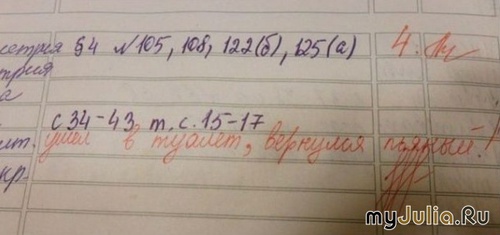 метрия §4 №105, 108, 122(б), 125(а) 4.
трия
а
с 34-43 т, с. 15-17
ушел в туалет, вернулся пьяный!
кр.
myJulia.Ru